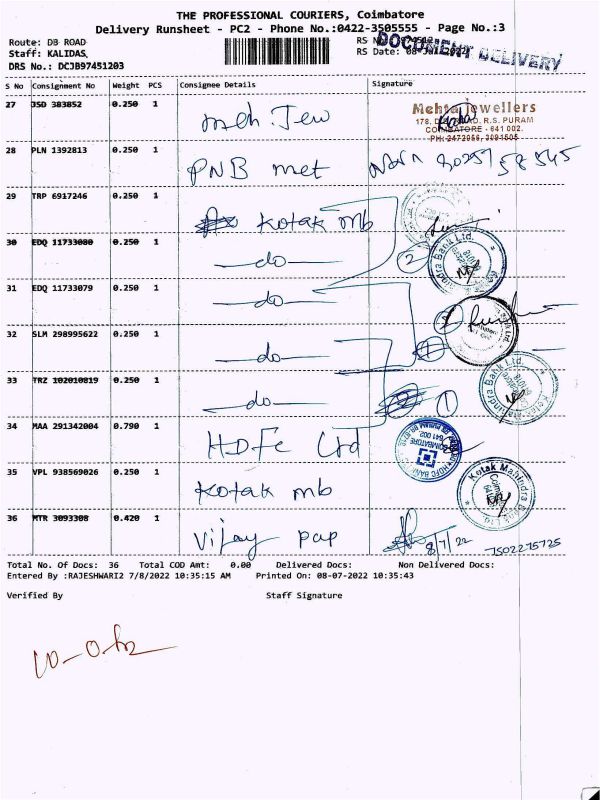 THE PROFESSIONAL COURIERS, Coimbatore
Delivery Runsheet - PC2 - Phone No.:0422-3505555 - Page No.:3
Route: DB ROAD
Staff: KALIDAS,
DRS No.: DCJB97451203
RS Date: 08-Jul-2022
DOCUMENT DELIVERY
S No Consignment No Weight PCS Consignee Details Signature
27 JSD 383852 0.250 1 meh. Jew
Mehta Jewellers
R.S. PURAM
COIMBATORE - 641 002.
28 PLN 1392813 0.250 1 PNB met
29 TRP 6917246 0.250 1 Kotak mb
30 EDQ 11733080 0.250 1 -do- 2
31 EDQ 11733079 0.250 1 -do-
32 SLM 298995622 0.250 1 -do-
33 TRZ 102010819 0.250 1 -do- 1
34 MAA 291342004 0.790 1 HDFC Ltd
COIMBATORE 641 002
35 VPL 938569026 0.250 1 Kotak mb
Kotak Mahindra Bank Ltd.
36 MTR 3093308 0.420 1 Vijay pap 8/7/22 7502275725
Total No. Of Docs: 36 Total COD Amt: 0.00 Delivered Docs: Non Delivered Docs:
Entered By :RAJESHWARI2 7/8/2022 10:35:15 AM Printed On: 08-07-2022 10:35:43
Verified By Staff Signature